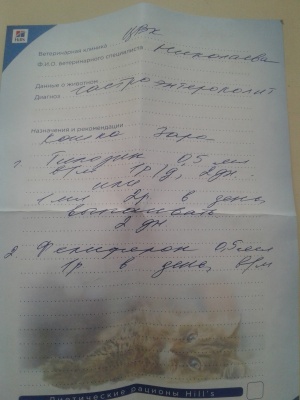 Hill's
Ветеринарная клиника
Ф.И.О. ветеринарного специалиста Николаева
Данные о животном
Диагноз гастроэнтероколит
Назначения и рекомендации
кошка Зара
1. 0,5 мл
в/м 1р/д, 2 дн.
или
1 мл 2р. в день
выпаивать
2 дн
2. 0,5 мл
1р в день, в/м
Диетические рационы Hill's